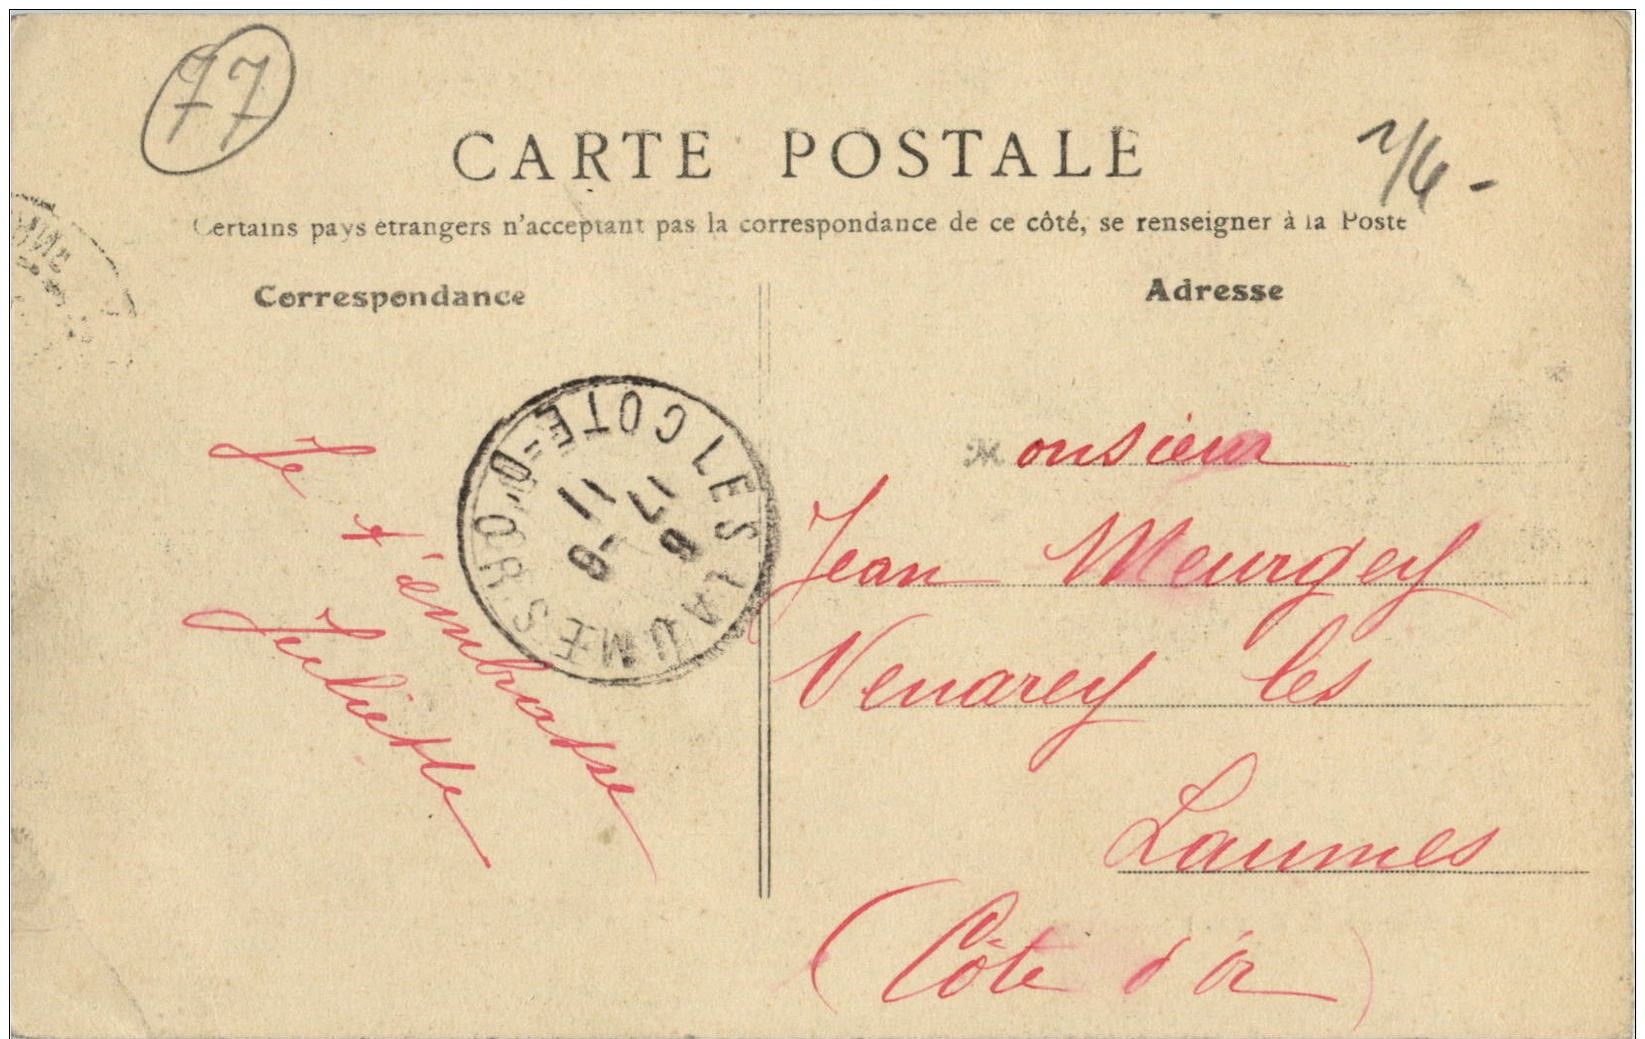 77
CARTE POSTALE
7/6-
Certains pays étrangers n'acceptant pas la correspondance de ce côté, se renseigner à la Poste
Correspondance
Adresse
LES LAUMES COTE-D'OR
6
17 -6
11
Je t'embrasse
Juliette
Monsieur
Jean Meurgey
Venarey les
Laumes
(Côte d'Or)